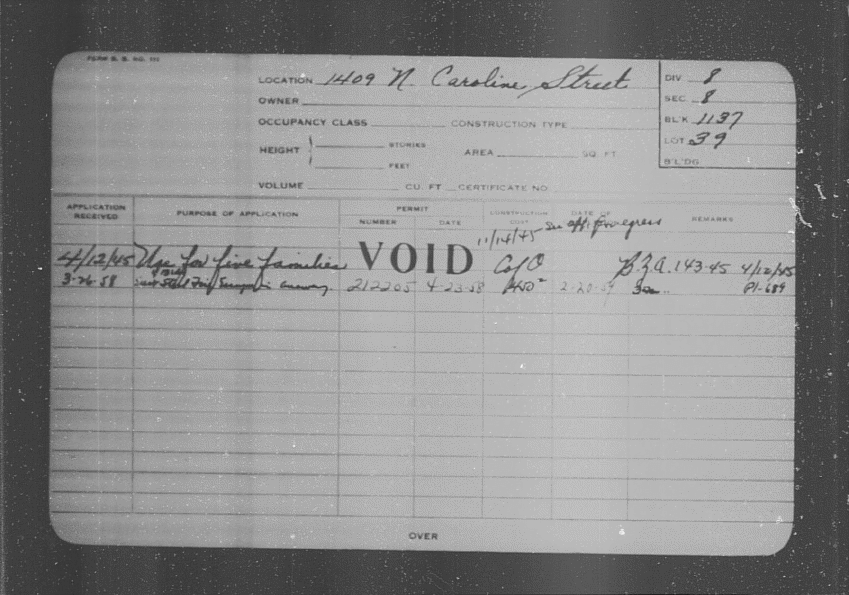 FORM B. B. NO. 111
LOCATION 1409 N. Caroline Street
DIV. 8
OWNER
SEC. 8
OCCUPANCY CLASS CONSTRUCTION TYPE
BL'K 1137
HEIGHT STORIES AREA SQ. FT.
LOT 39
FEET
B'L'DG
VOLUME CU. FT. CERTIFICATE NO.
APPLICATION RECEIVED PURPOSE OF APPLICATION PERMIT NUMBER DATE CONSTRUCTION COST DATE OF REMARKS
11/14/45 See appl. for egress
4/12/45 Use for five families VOID C/O B.Z.A. 143-45 4/12/45
3-26-58 Steel Fire 212205 4-23-58 2-20-59 P1-689
OVER